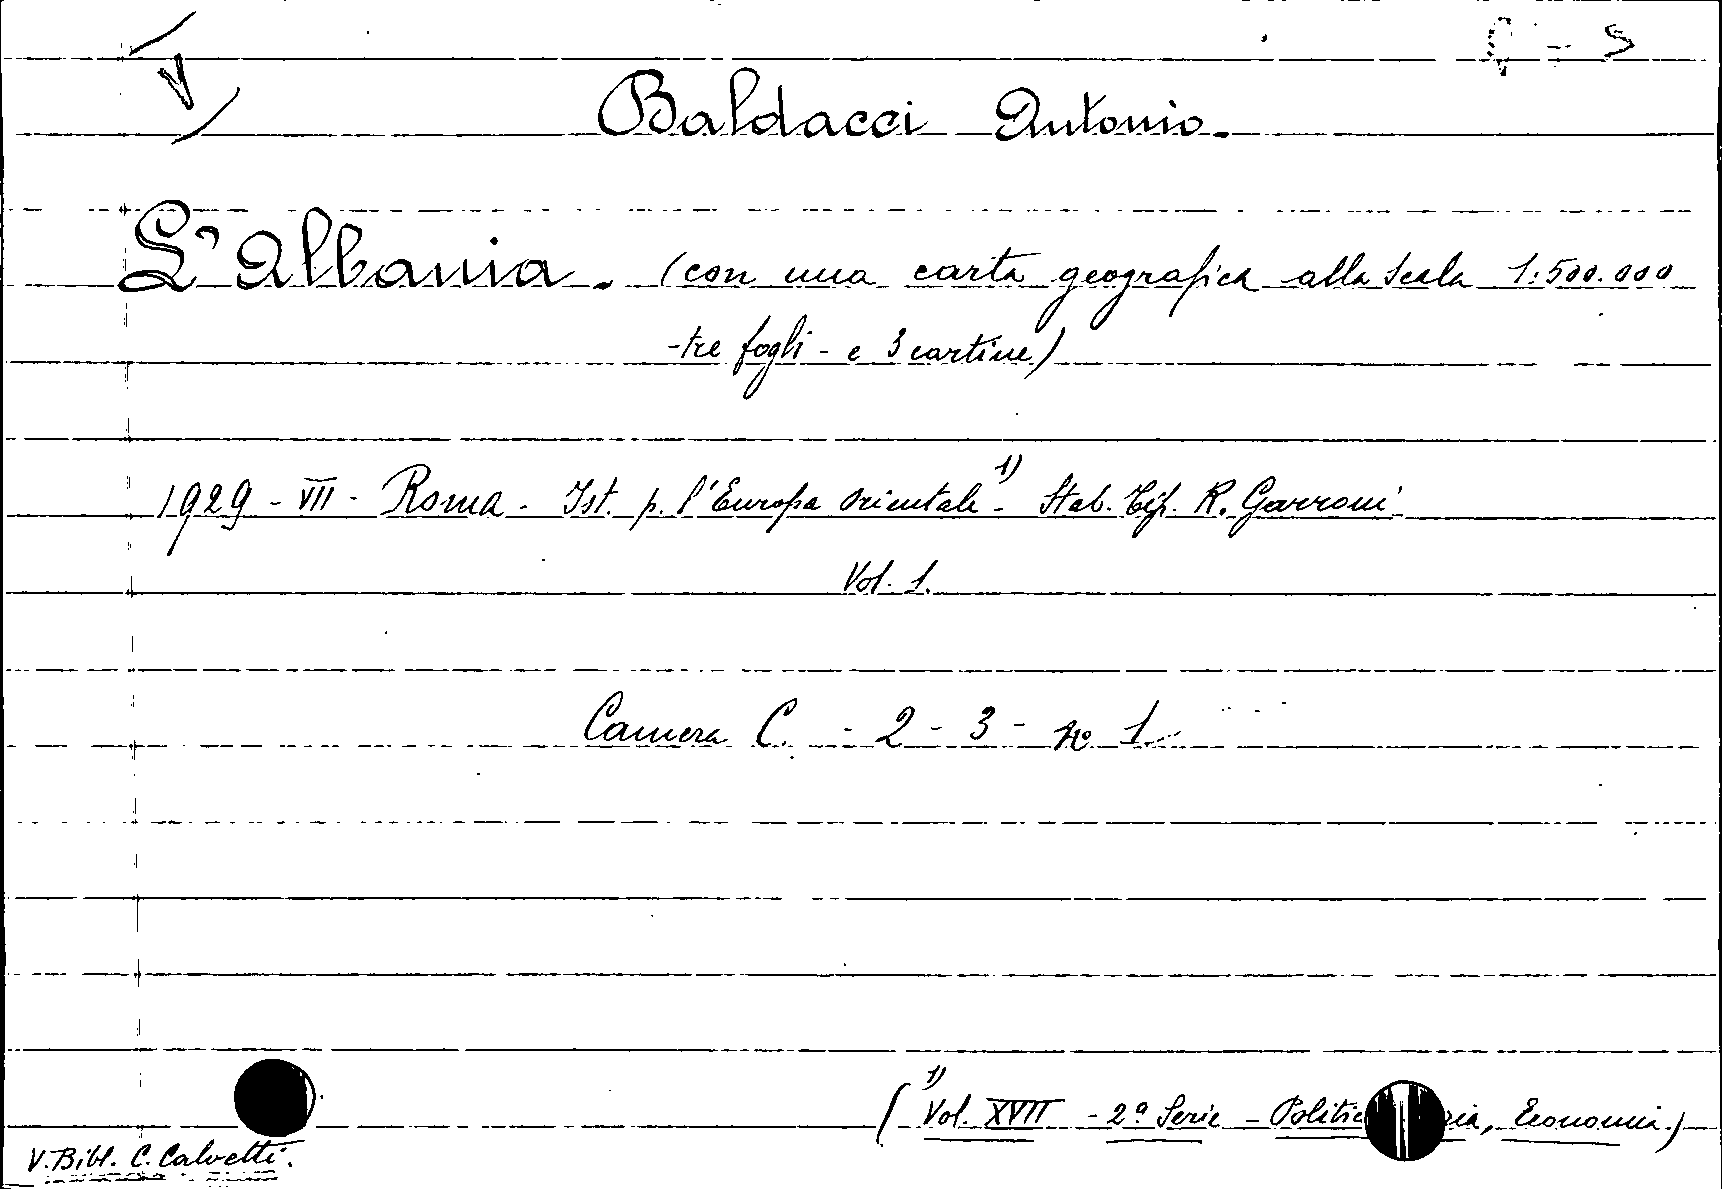 V
Baldacci Antonio.
L'Albania. (con una carta geografica alla scala 1:500.000
-tre fogli - e 3 cartine)
1929 - VII - Roma - Ist. p. l'Europa orientale 1) - Stab. Tip. R. Garroni
Vol. 1.
Camera C. - 2 - 3 - nº 1
( 1) Vol. XVII - 2ª Serie - Economia.)
V. Bibl. C. Calvetti.